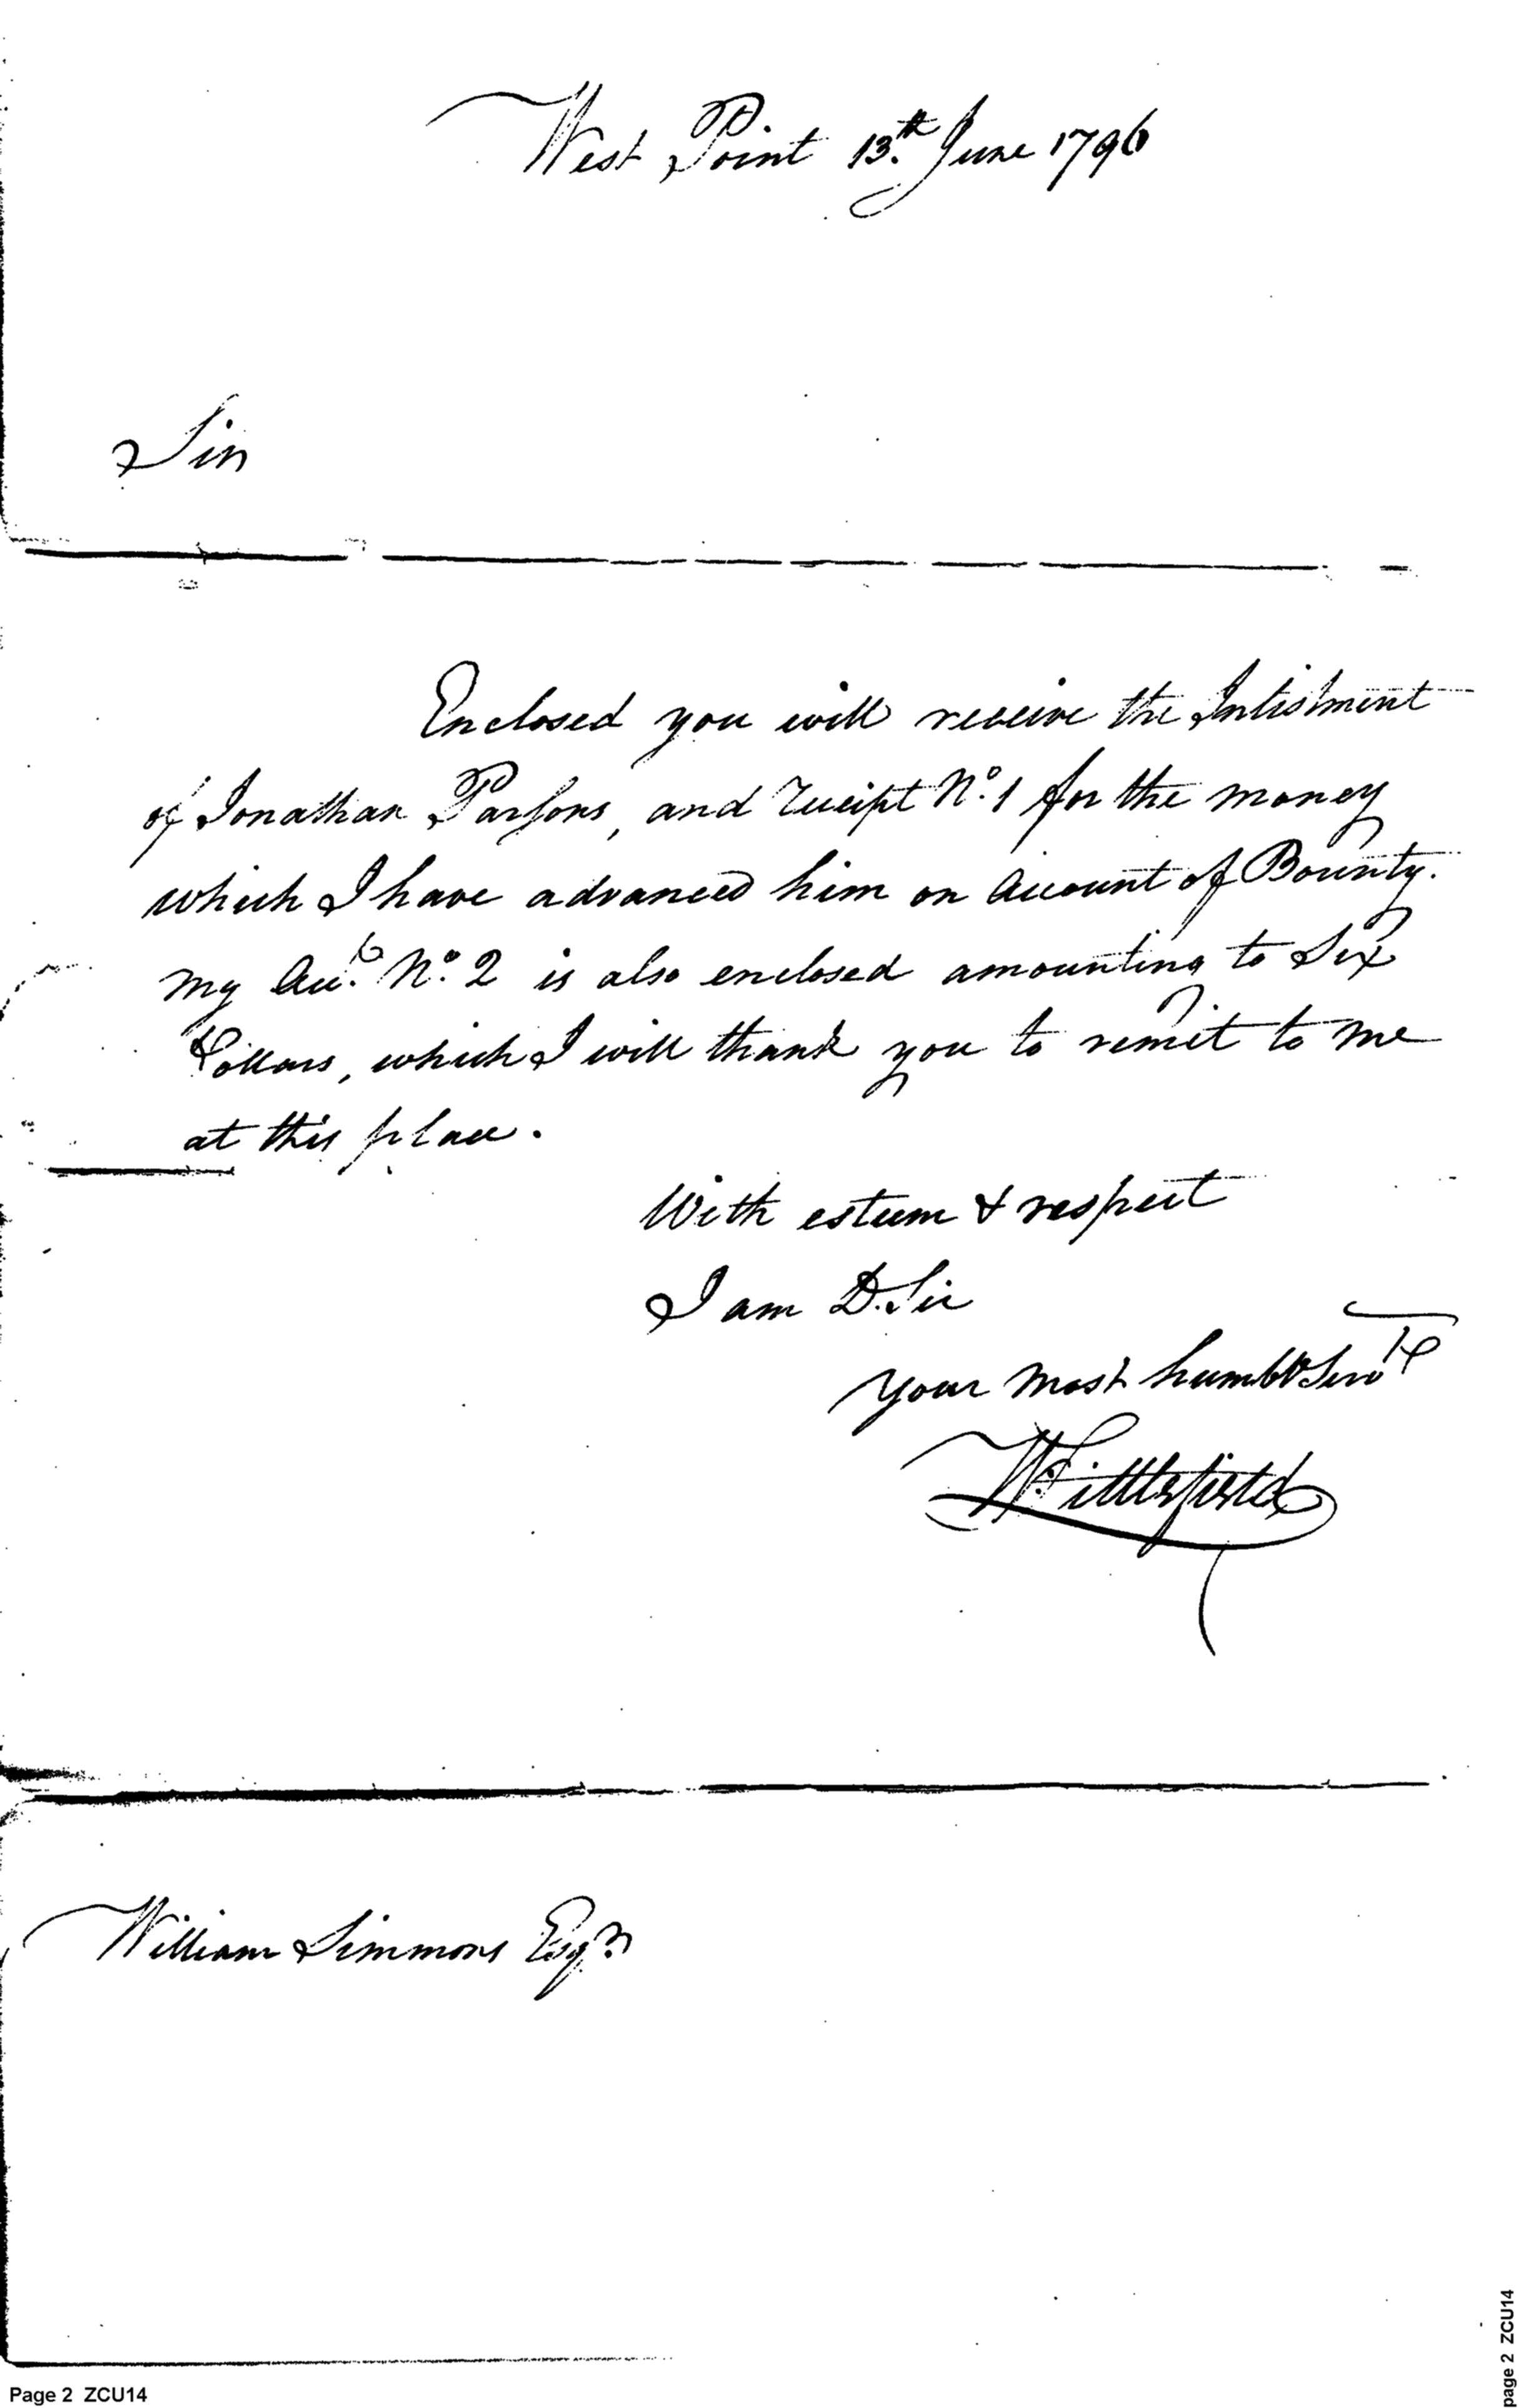 West Point 13th June 1796
Sir
Enclosed you will receive the Inlistment
of Jonathan Parsons, and receipt No. 1 for the money
which I have advanced him on Account of Bounty.
my Acct. No. 2 is also enclosed amounting to Six
Dollars, which I will thank you to remit to me
at this place.
With esteem & respect
I am D. Sir
your most humbl Servt
W. Littlefield
William Simmons Esqr
Page 2 ZCU14
page 2 ZCU14